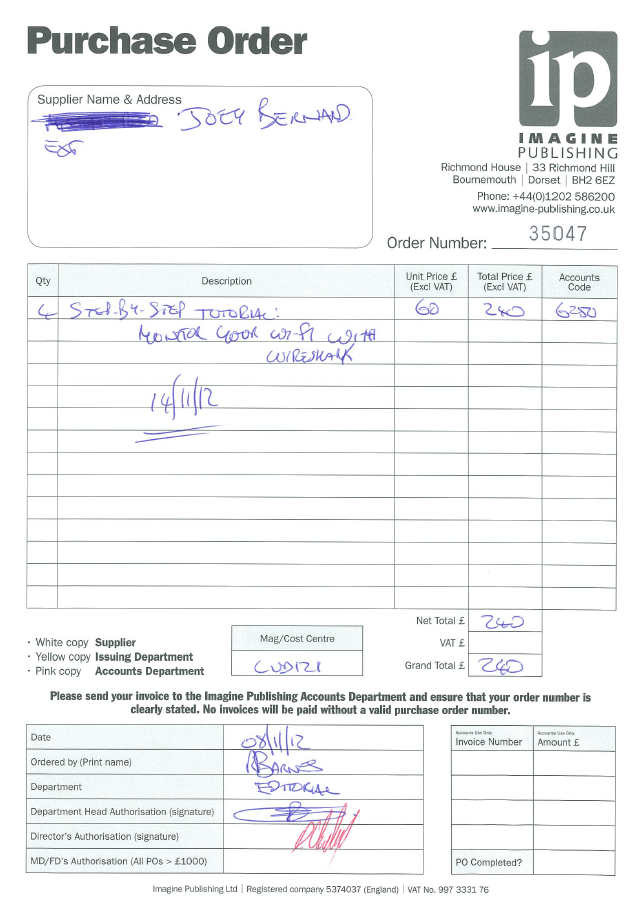 Purchase Order
Supplier Name & Address
JOEY BERNARD
EXT
ip
IMAGINE
PUBLISHING
Richmond House | 33 Richmond Hill
Bournemouth | Dorset | BH2 6EZ
Phone: +44(0)1202 586200
www.imagine-publishing.co.uk
Order Number: 35047
Qty Description Unit Price £ (Excl VAT) Total Price £ (Excl VAT) Accounts Code
4 STEP-BY-STEP TUTORIAL: 60 240 6280
MONITOR YOUR WI-FI WITH
WIRESHARK
14/11/12
Net Total £ 240
VAT £
Grand Total £ 240
· White copy Supplier
· Yellow copy Issuing Department
· Pink copy Accounts Department
Mag/Cost Centre
LUD121
Please send your invoice to the Imagine Publishing Accounts Department and ensure that your order number is
clearly stated. No invoices will be paid without a valid purchase order number.
Date 08/11/12
Ordered by (Print name) RBARNES
Department EDITORIAL
Department Head Authorisation (signature)
Director's Authorisation (signature)
MD/FD's Authorisation (All POs > £1000)
Accounts Use Only
Invoice Number
Accounts Use Only
Amount £
PO Completed?
Imagine Publishing Ltd | Registered company 5374037 (England) | VAT No. 997 3331 76